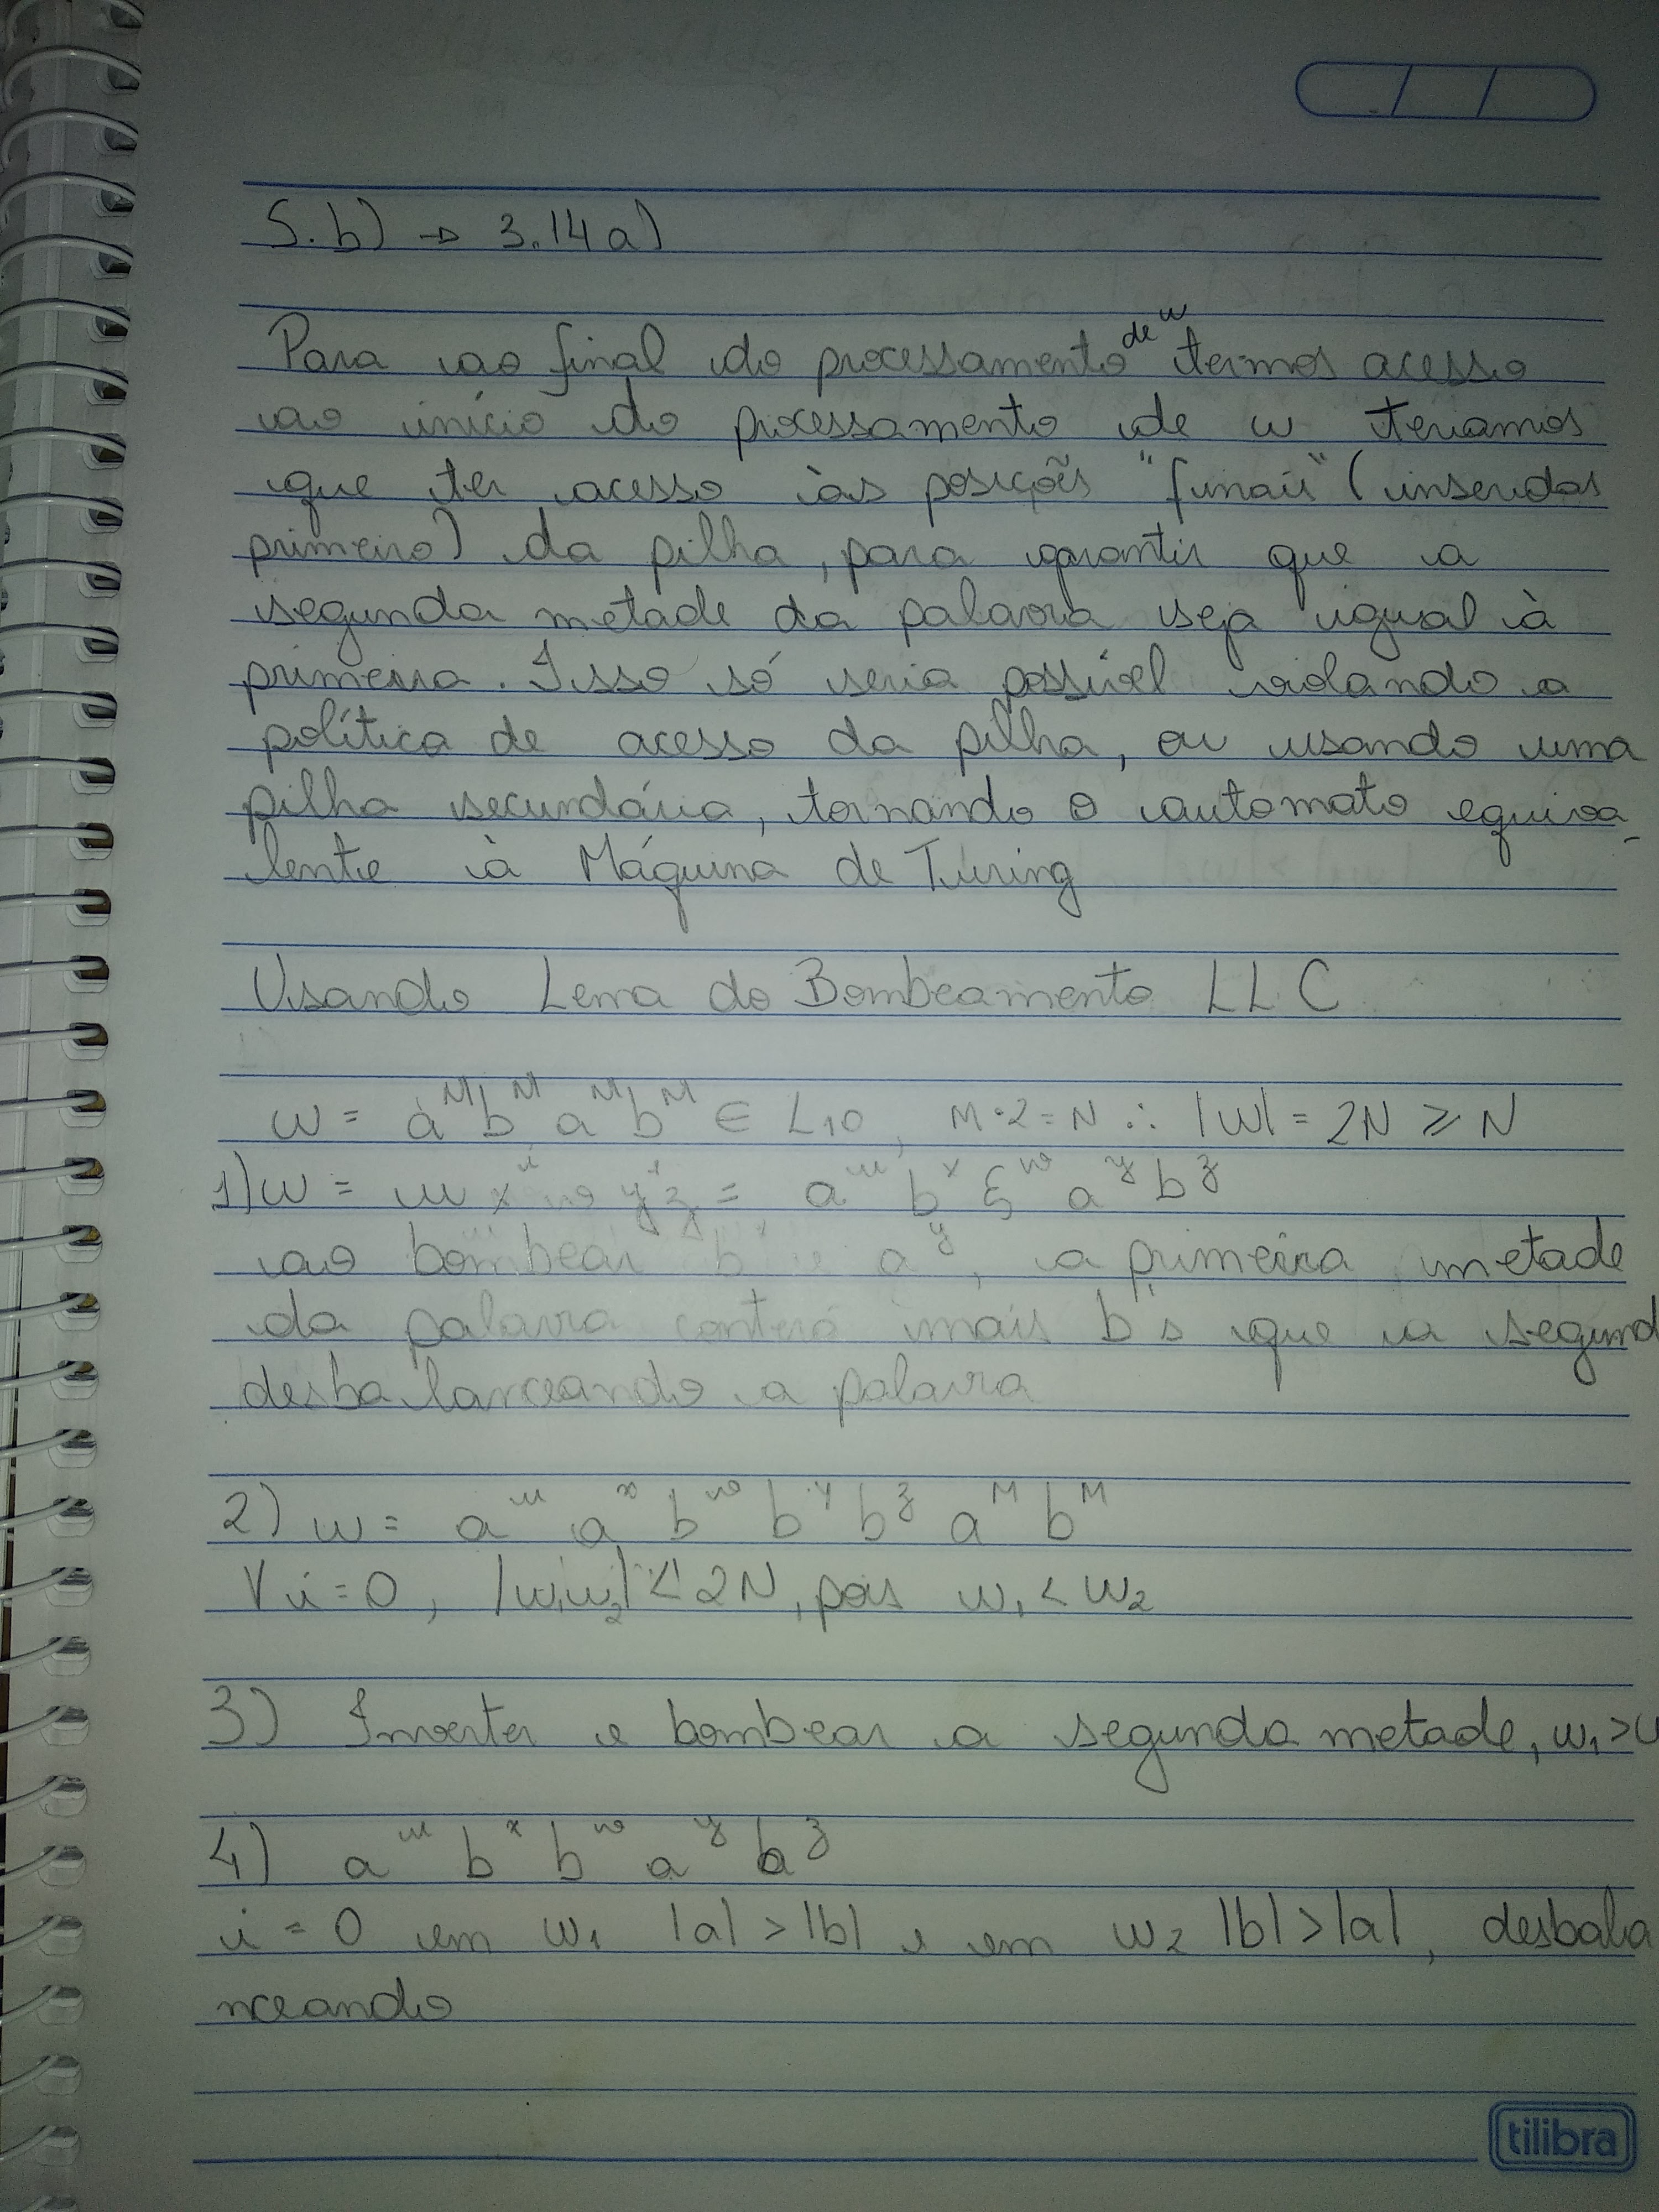 5.b) → 3.14a)
Para ao final do processamento de w termos acesso
ao início do processamento de w teriamos
que ter acesso às posições "finais" (inseridas
primeiro) da pilha, para garantir que a
segunda metade da palavra seja igual à
primeira. Isso só seria possível violando a
política de acesso da pilha, ou usando uma
pilha secundária, tornando o autômato equiva-
lente à Máquina de Turing
Usando Lema do Bombeamento LLC
w = a^M b^M a^M b^M ∈ L10, M·2=N ∴ |w| = 2N ≥ N
1) w = u x^i v y^i z = a^u b^x ξ^v a^y b^z
ao bombear b^x e a^y, a primeira metade
da palavra conterá mais b's que a segund
desbalanceando a palavra
2) w = a^u a^x b^v b^y b^z a^M b^M
∀ i=0, |w1w2| < 2N, pois w1 < w2
3) Inverter e bombear a segunda metade, w1 >
4) a^u b^x b^v a^y b^z
i = 0 em w1 |a| > |b| e em w2 |b| > |a|, desbala
nceando
tilibra